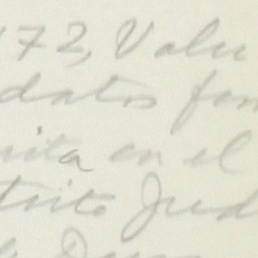 172, Valu
datos fam
rita en el
trito Jud